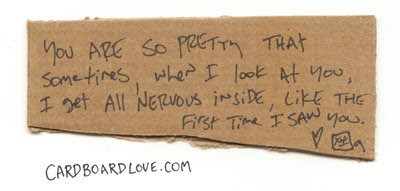 YOU ARE SO PRETTY THAT
sometimes, when I look At you,
I get All NERVOUS inside, LIKE THE
First Time I SAW YOU.
CARDBOARDLOVE.COM